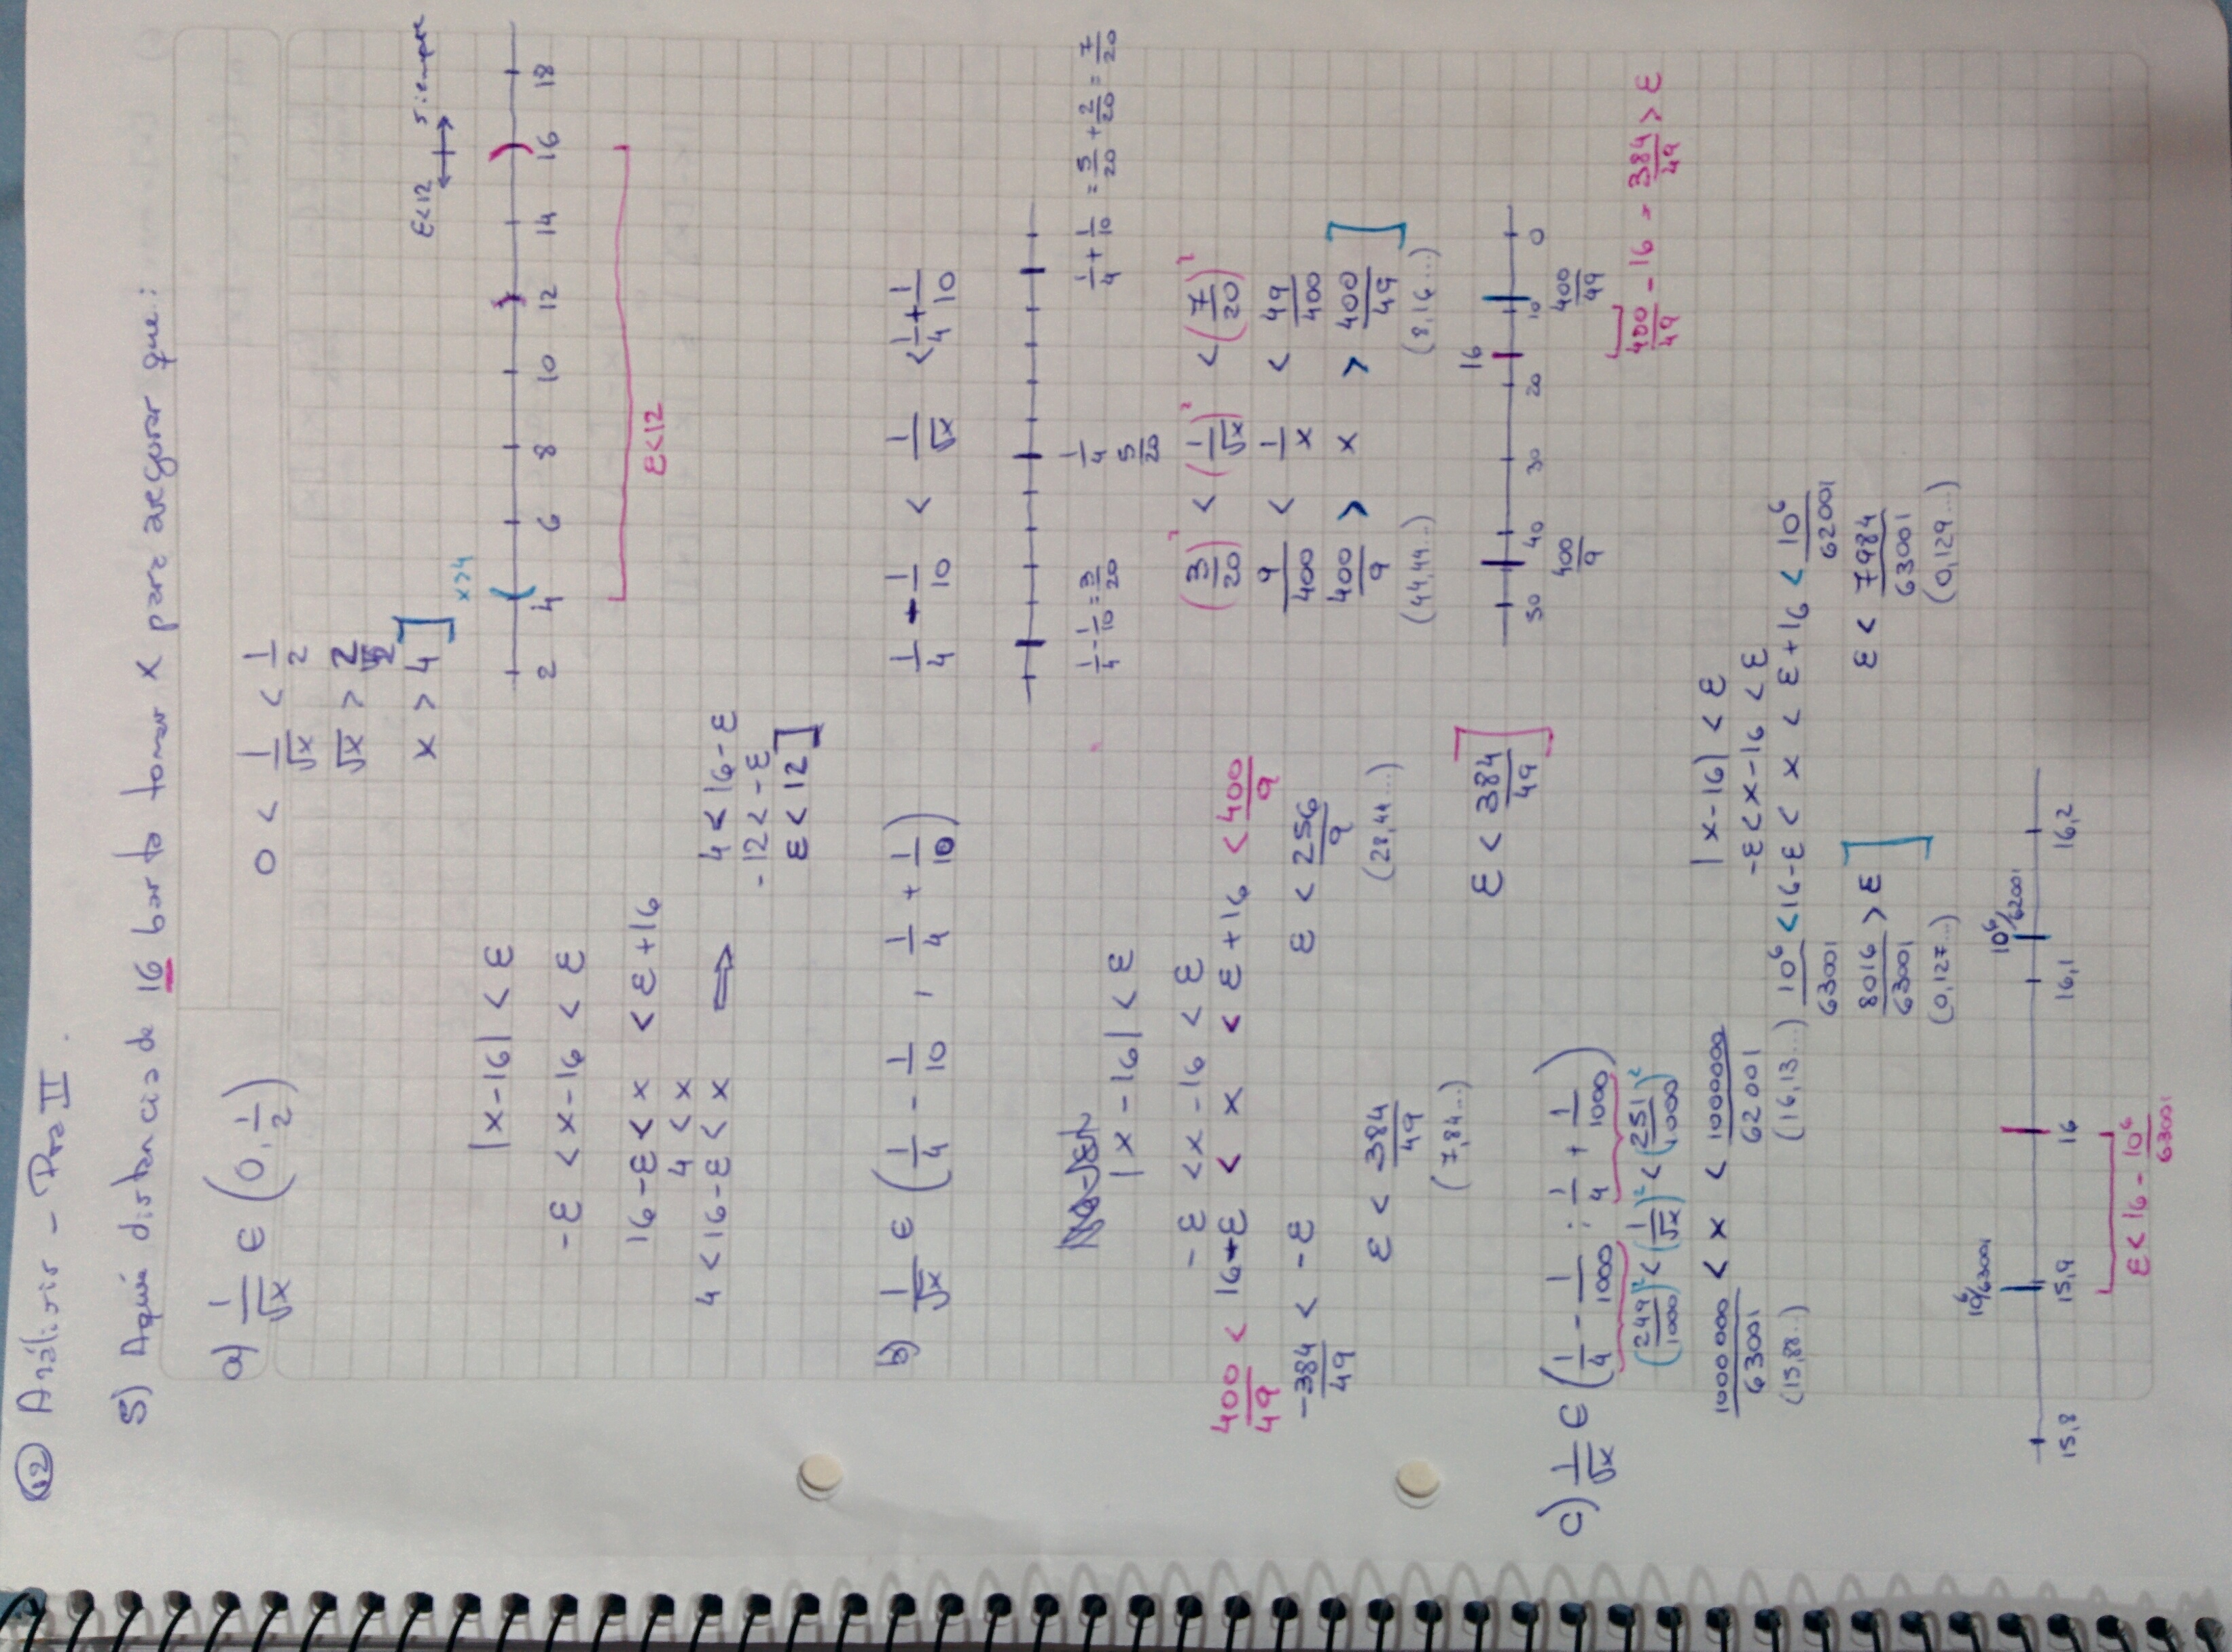 12 Análisis - Pra II.
5) Aqué distancia de 16 basta tomar x para asegurar que:
a) 1/√x ∈ (0, 1/2)
0 < 1/√x < 1/2
√x > 2
x > 4]
|x-16| < ε
-ε < x-16 < ε
16-ε < x < ε+16
4 < x
4 < 16-ε < x ⟹ 4 < 16-ε
-12 < -ε
ε < 12]
ε<12 siempre
x>4
2 4 6 8 10 12 14 16 18
ε<12
b) 1/√x ∈ (1/4 - 1/10, 1/4 + 1/10)
1/4 - 1/10 < 1/√x < 1/4 + 1/10
1/4 - 1/10 = 3/20
1/4
5/20
1/4 + 1/10 = 5/20 + 2/20 = 7/20
|x-16| < ε
-ε < x-16 < ε
400/49 < 16-ε < x < ε+16 < 400/9
-384/49 < -ε
ε < 256/9
ε < 384/49
(28,44...)
(7,84...)
ε < 384/49]
(3/20)² < (1/√x)² < (7/20)²
9/400 < 1/x < 49/400
400/9 > x > 400/49]
(44,44...) (8,16...)
16
50 40 30 20 10 0
400/9 400/49
400/49 - 16 = 384/49 > ε
c) 1/√x ∈ (1/4 - 1/1000 ; 1/4 + 1/1000)
(249/1000)² < (1/√x)² < (251/1000)²
1000000/63001 < x < 1000000/62001
(15,88...) (16,13...)
|x-16| < ε
-ε<x-16 < ε
10⁶/63001 < 16-ε < x < ε+16 < 10⁶/62001
8016/63001 > ε]
ε < 7984/63001
(0,127...) (0,129...)
10⁶/63001 10⁶/62001
15,8 15,9 16 16,1 16,2
ε < 16 - 10⁶/63001